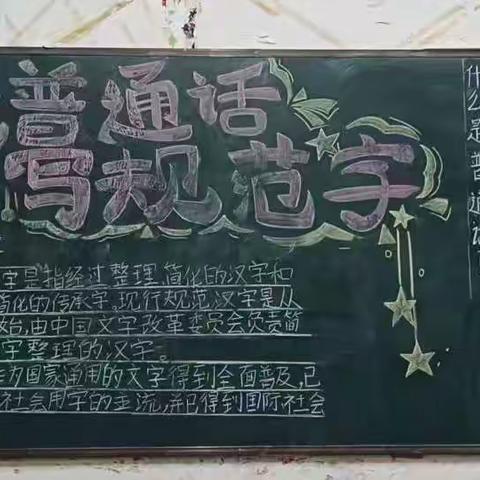 普通话
写规范字
字是指经过整理简化的汉字和
简化的传承字。现行规范汉字是从
始,由中国文字改革委员会负责简
字整理的汉字。
为国家通用的文字得到全面普及,已
社会用字的主流,并已得到国际社会
什么是普通话